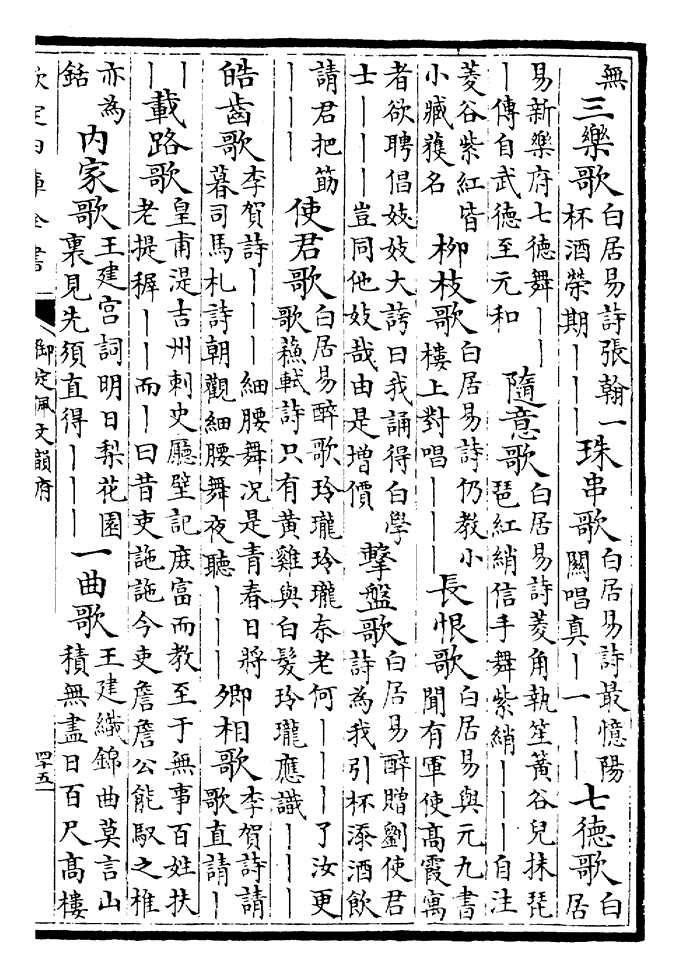 無三樂歌白居易詩張翰一杯酒榮期｜｜｜珠串歌白居易詩最憶陽關唱真｜一｜｜七德歌白居
易新樂府七德舞｜｜｜傳自武德至元和隨意歌白居易詩菱角執笙簧谷兒抹琵琶紅綃信手舞紫綃｜｜｜自注
菱谷紫紅皆小臧獲名柳枝歌白居易詩仍教小樓上對唱｜｜｜長恨歌白居易與元九書聞有軍使高霞寓
者欲聘倡妓妓大誇曰我誦得白學士｜｜｜豈同他妓哉由是增價擊盤歌白居易醉贈劉使君詩為我引杯添酒飲
請君把筯｜｜｜使君歌白居易醉歌玲瓏玲瓏奈老何｜｜｜了汝更歌蘓軾詩只有黄雞與白髪玲瓏應識｜｜｜
皓齒歌李賀詩｜｜｜細腰舞况是青春日將暮司馬札詩朝觀細腰舞夜聽｜｜｜卿相歌李賀詩請歌直請｜
｜｜載路歌皇甫湜吉州刺史廳壁記庶富而教至于無事百姓扶老提穉｜｜而｜曰昔吏訑訑今吏詹詹公能馭之椎
亦為銛内家歌王建宫詞明日梨花園裏見先須直得｜｜｜一曲歌王建織錦曲莫言山積無盡日百尺高樓
欽定四庫全書
御定佩文韻府
四十五